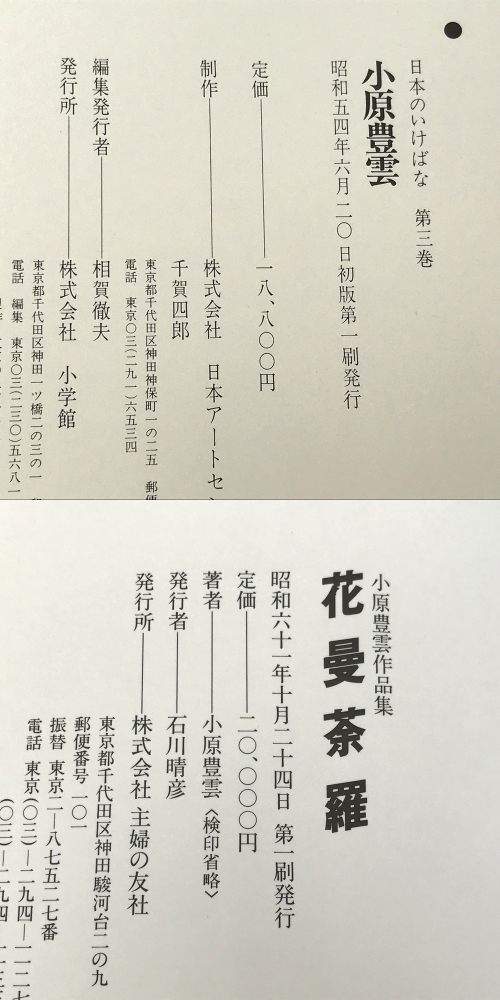 日本のいけばな　第三巻
小原豊雲
昭和五四年六月二〇日初版第一刷発行
定価――一八、八〇〇円
制作――株式会社　日本アートセ
千賀四郎
東京都千代田区神田神保町一の二五　郵便
電話　東京〇三(二九一)六五三四
編集発行者――相賀徹夫
発行所――株式会社　小学館
東京都千代田区神田一ツ橋二の三の一
電話　編集　東京〇三(二三〇)五六八一
小原豊雲作品集
花曼荼羅
昭和六十一年十月二十四日　第一刷発行
定価――二〇、〇〇〇円
著者――小原豊雲〈検印省略〉
発行者――石川晴彦
発行所――株式会社 主婦の友社
東京都千代田区神田駿河台二の九
郵便番号 一〇一
振替 東京二―八七五二七番
電話 東京(〇三)―二九四―一一二
(〇三)―二九四